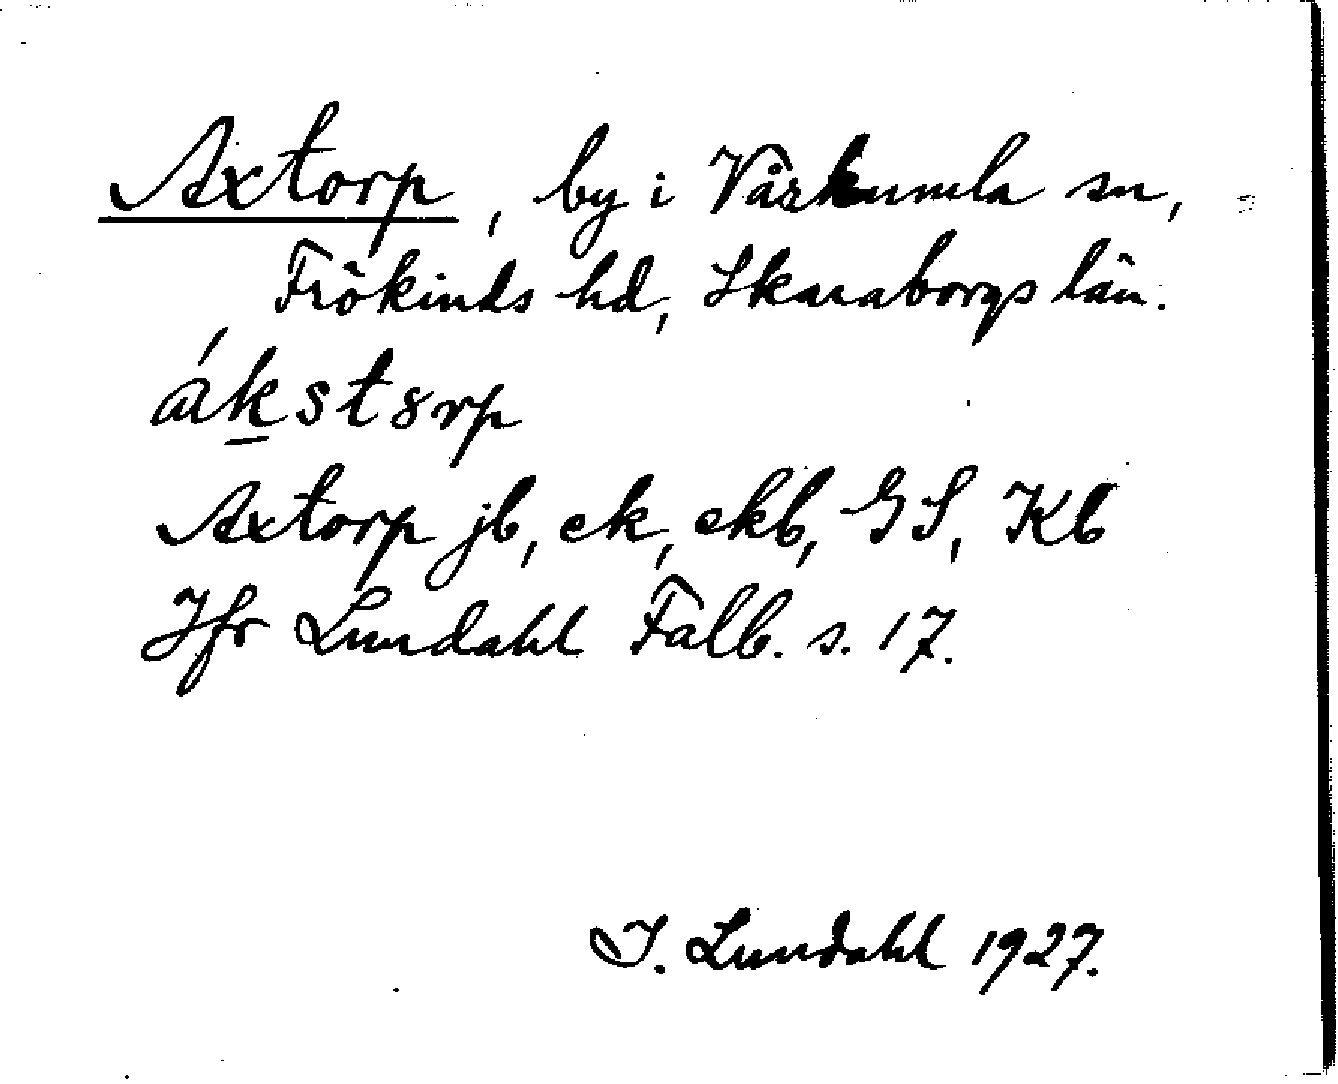 Axtorp, by i Vårkumla sn,
Frökinds hd, Skaraborgs län.
ákstȣrp
Axtorp jb, ek, ekb, GS, Kb
Jfr Lundahl Falb. s. 17.
I. Lundahl 1927.